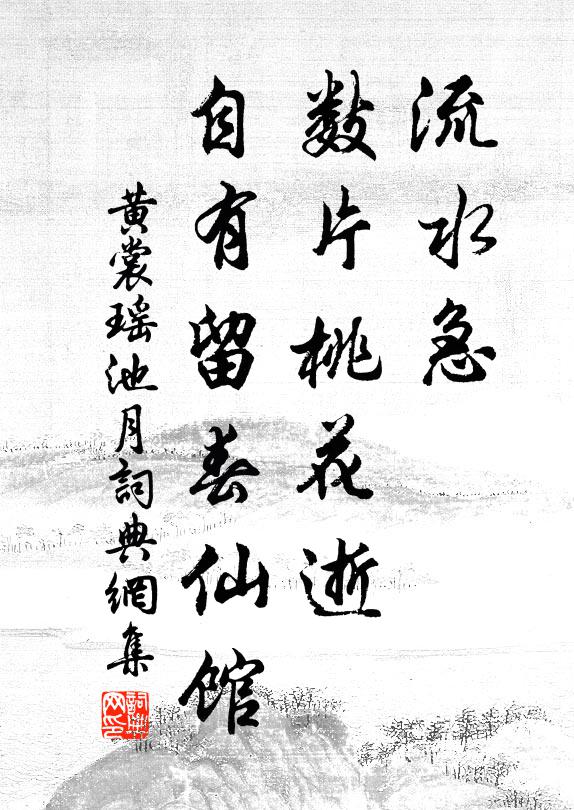 流水急
数片桃花逝
自有留春仙馆
黄裳瑶池月詞典網集